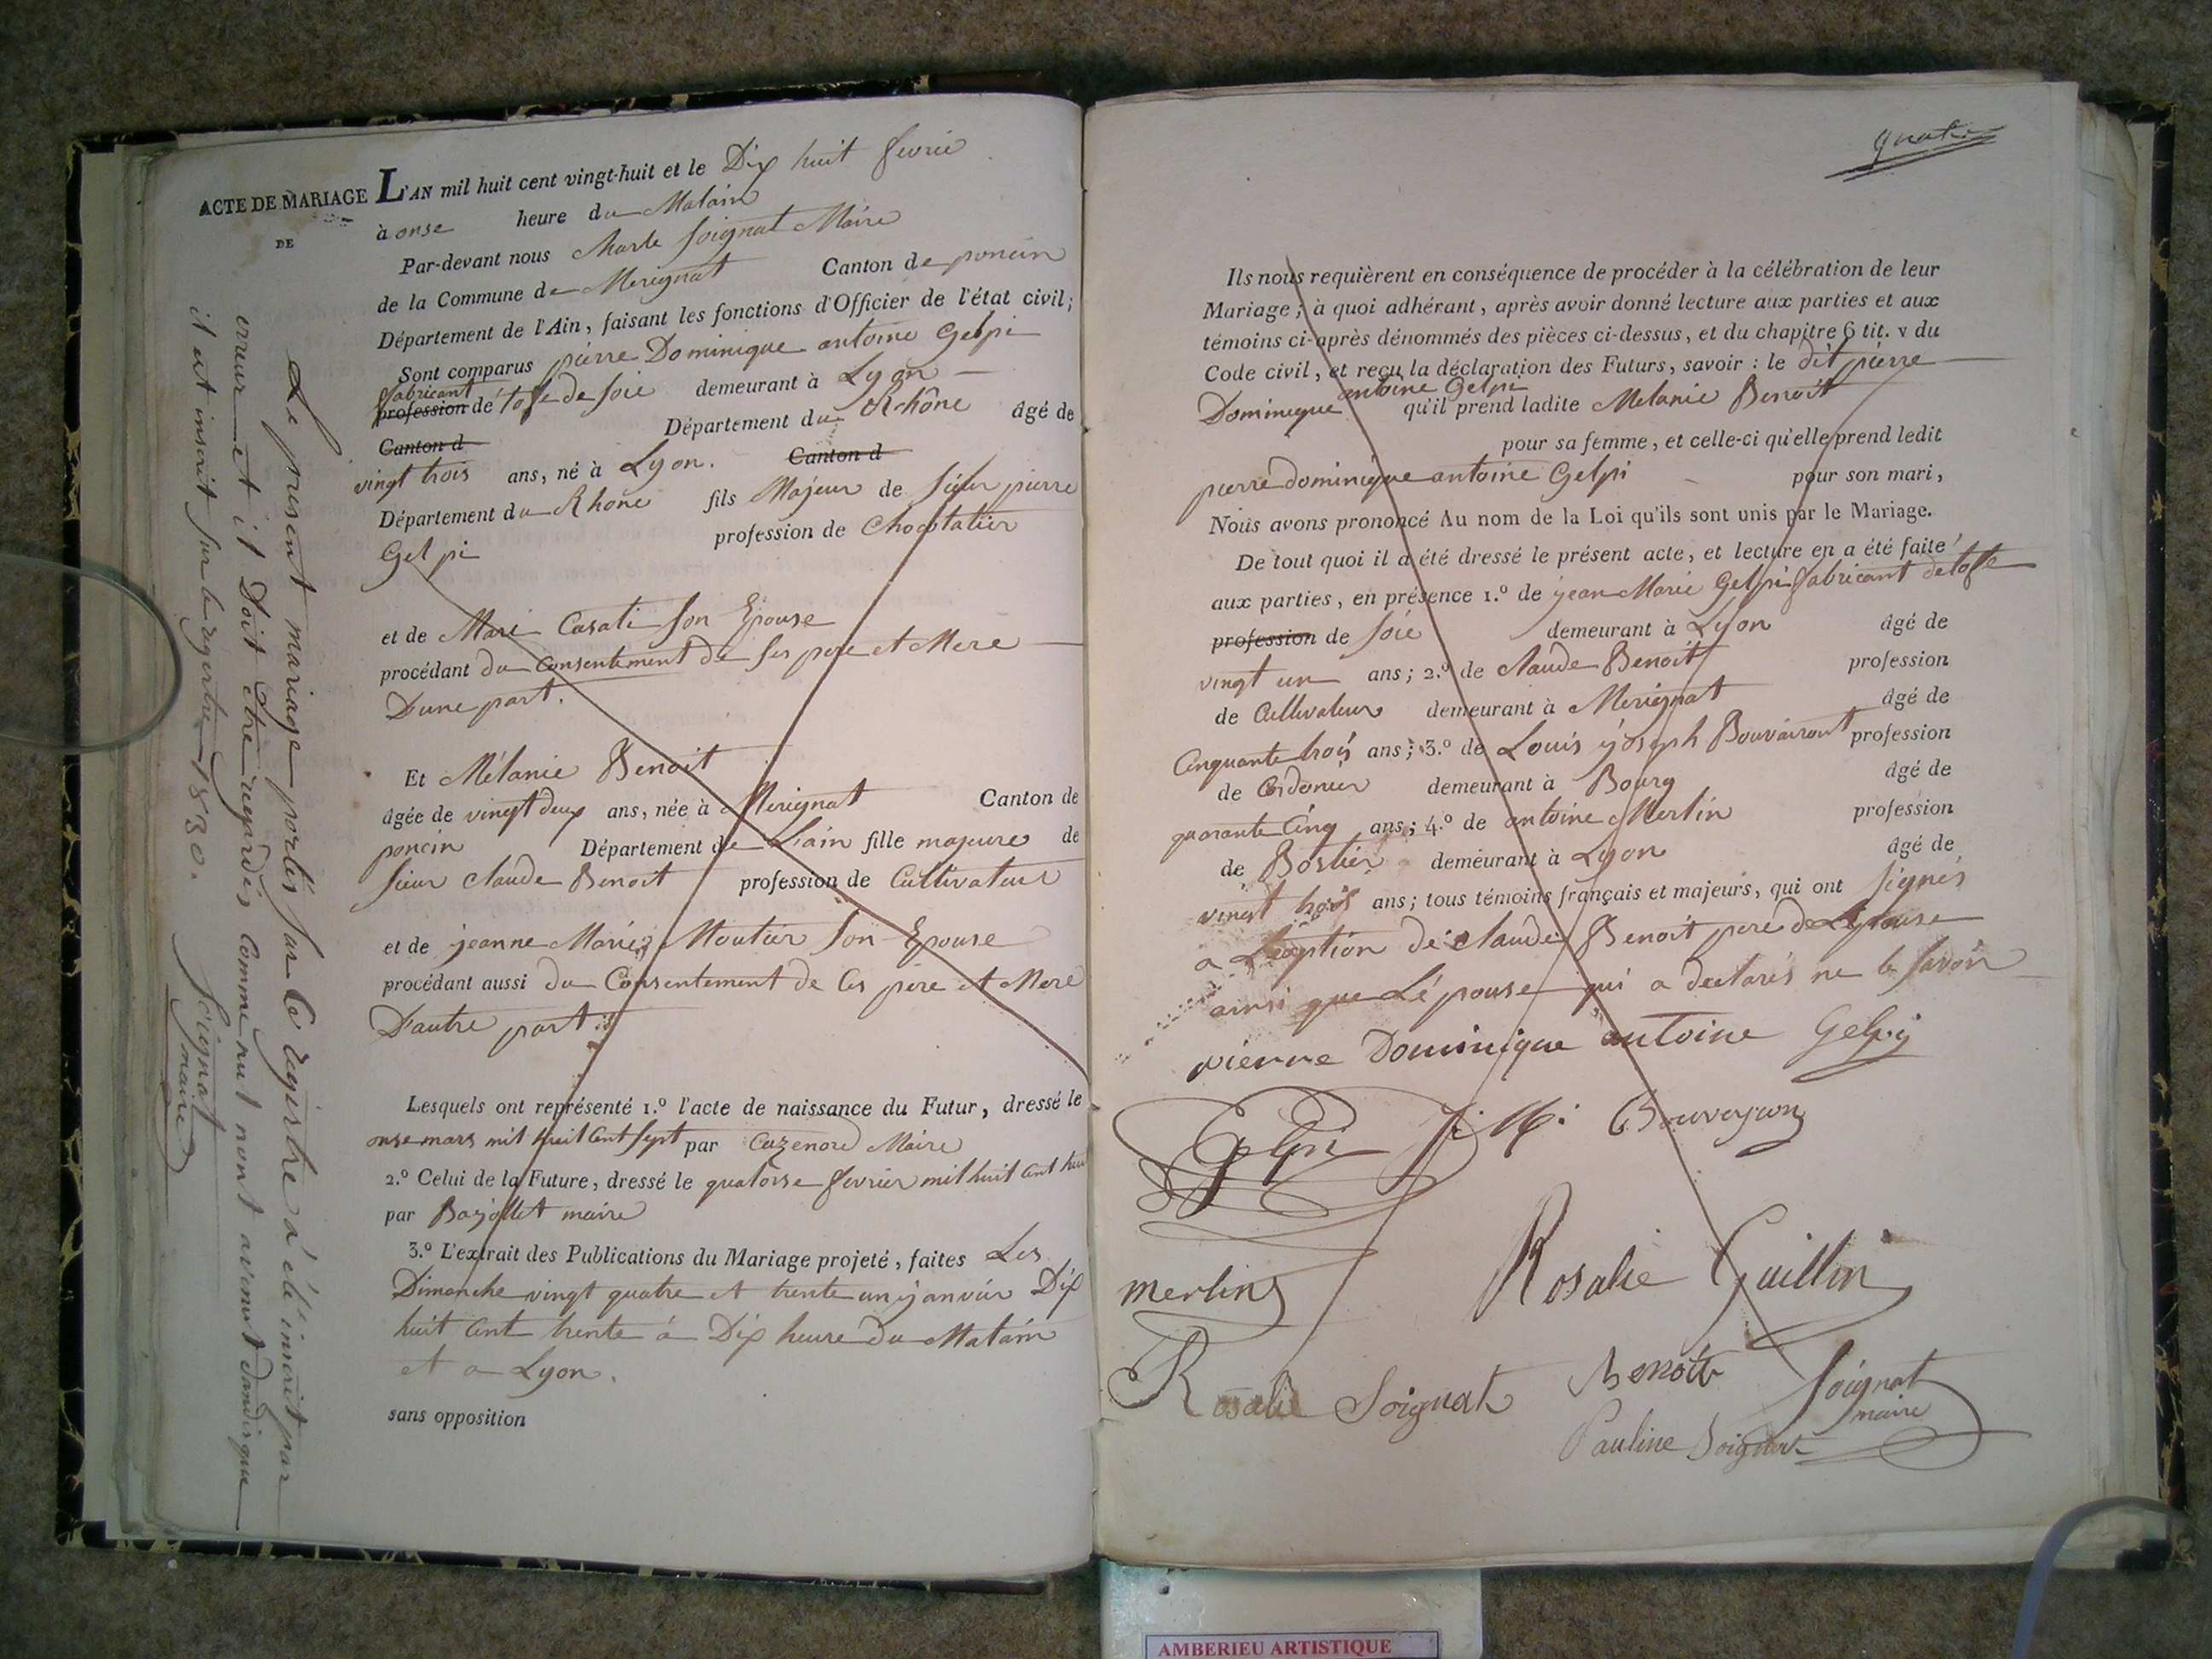 ACTE DE MARIAGE
DE
L'AN mil huit cent vingt-huit et le Dix huit fevrie
à onse heure du Matain
Par-devant nous Charle Soignat Maire
de la Commune de Merignat Canton de poncin
Département de l'Ain, faisant les fonctions d'Officier de l'état civil;
Sont comparus pierre Dominique antoine Gelpi
fabricant
profession de tofe de soie demeurant à Lyon
Canton d Département du Rhône âgé de
vingt trois ans, né à Lyon. Canton d
Département du Rhone fils Majeur de Sieur pierre
Gelpi profession de Chocolatier
et de Marie Casati son Epouse
procédant du Consentement de ses pere et Mere
Dune part.
Et Mélanie Benoit
âgée de vingt deux ans, née à Merignat Canton de
poncin Département de Liain fille majeure de
sieur claude Benoit profession de Cultivateur
et de jeanne Marie Moutier son Epouse
procédant aussi du Consentement de ces père et Mere
D'autre part.
Lesquels ont représenté 1.º l'acte de naissance du Futur, dressé le
onse mars mil huit cent sept par Cazenove Maire
2.º Celui de la Future, dressé le quatorse fevrier mil huit cent hui
par Bajollet maire
3.º L'extrait des Publications du Mariage projeté, faites Les
Dimanche vingt quatre et trente un janvier Dix
huit cent trente à Dix heure du Matain
et a Lyon.
sans opposition
Le présent mariage portés sur le registre a été inscrit par
erreur et il Doit etre regardés comme nul nont avenut tandis que
il est inscrit sur le registre 1830.
Soignat
maire
quatre
Ils nous requièrent en conséquence de procéder à la célébration de leur
Mariage; à quoi adhérant, après avoir donné lecture aux parties et aux
témoins ci-après dénommés des pièces ci-dessus, et du chapitre 6 tit. v du
Code civil, et reçu la déclaration des Futurs, savoir : le dit pierre
Dominique antoine Gelpi qu'il prend ladite Melanie Benoit
pour sa femme, et celle-ci qu'elle prend ledit
pierre dominique antoine Gelpi pour son mari,
Nous avons prononcé Au nom de la Loi qu'ils sont unis par le Mariage.
De tout quoi il a été dressé le présent acte, et lecture en a été faite
aux parties, en présence 1.º de jean Marie Gelpi fabricant detofe
profession de soie demeurant à Lyon âgé de
vingt un ans; 2.º de claude Benoit profession
de Cultivateur demeurant à Merignat âgé de
Cinquante trois ans; 3.º de Louis joseph Bouvairont profession
de Cordonier demeurant à Bourg âgé de
quarante Cinq ans; 4.º de antoine Merlin profession
de Bostier demeurant à Lyon âgé de
vingt trois ans; tous témoins français et majeurs, qui ont signés
a Lexption de claude Benoit pere de Lepouse
ainsi que Lépouse qui a declarés ne le savoir
pierre Dominique antoine Gelpy
Gelpi J. M. Bouveyron
merlin Rosalie Guillin
Rosalie Soignat Benoit Soignat
maire
Pauline Soignat
AMBERIEU ARTISTIQUE